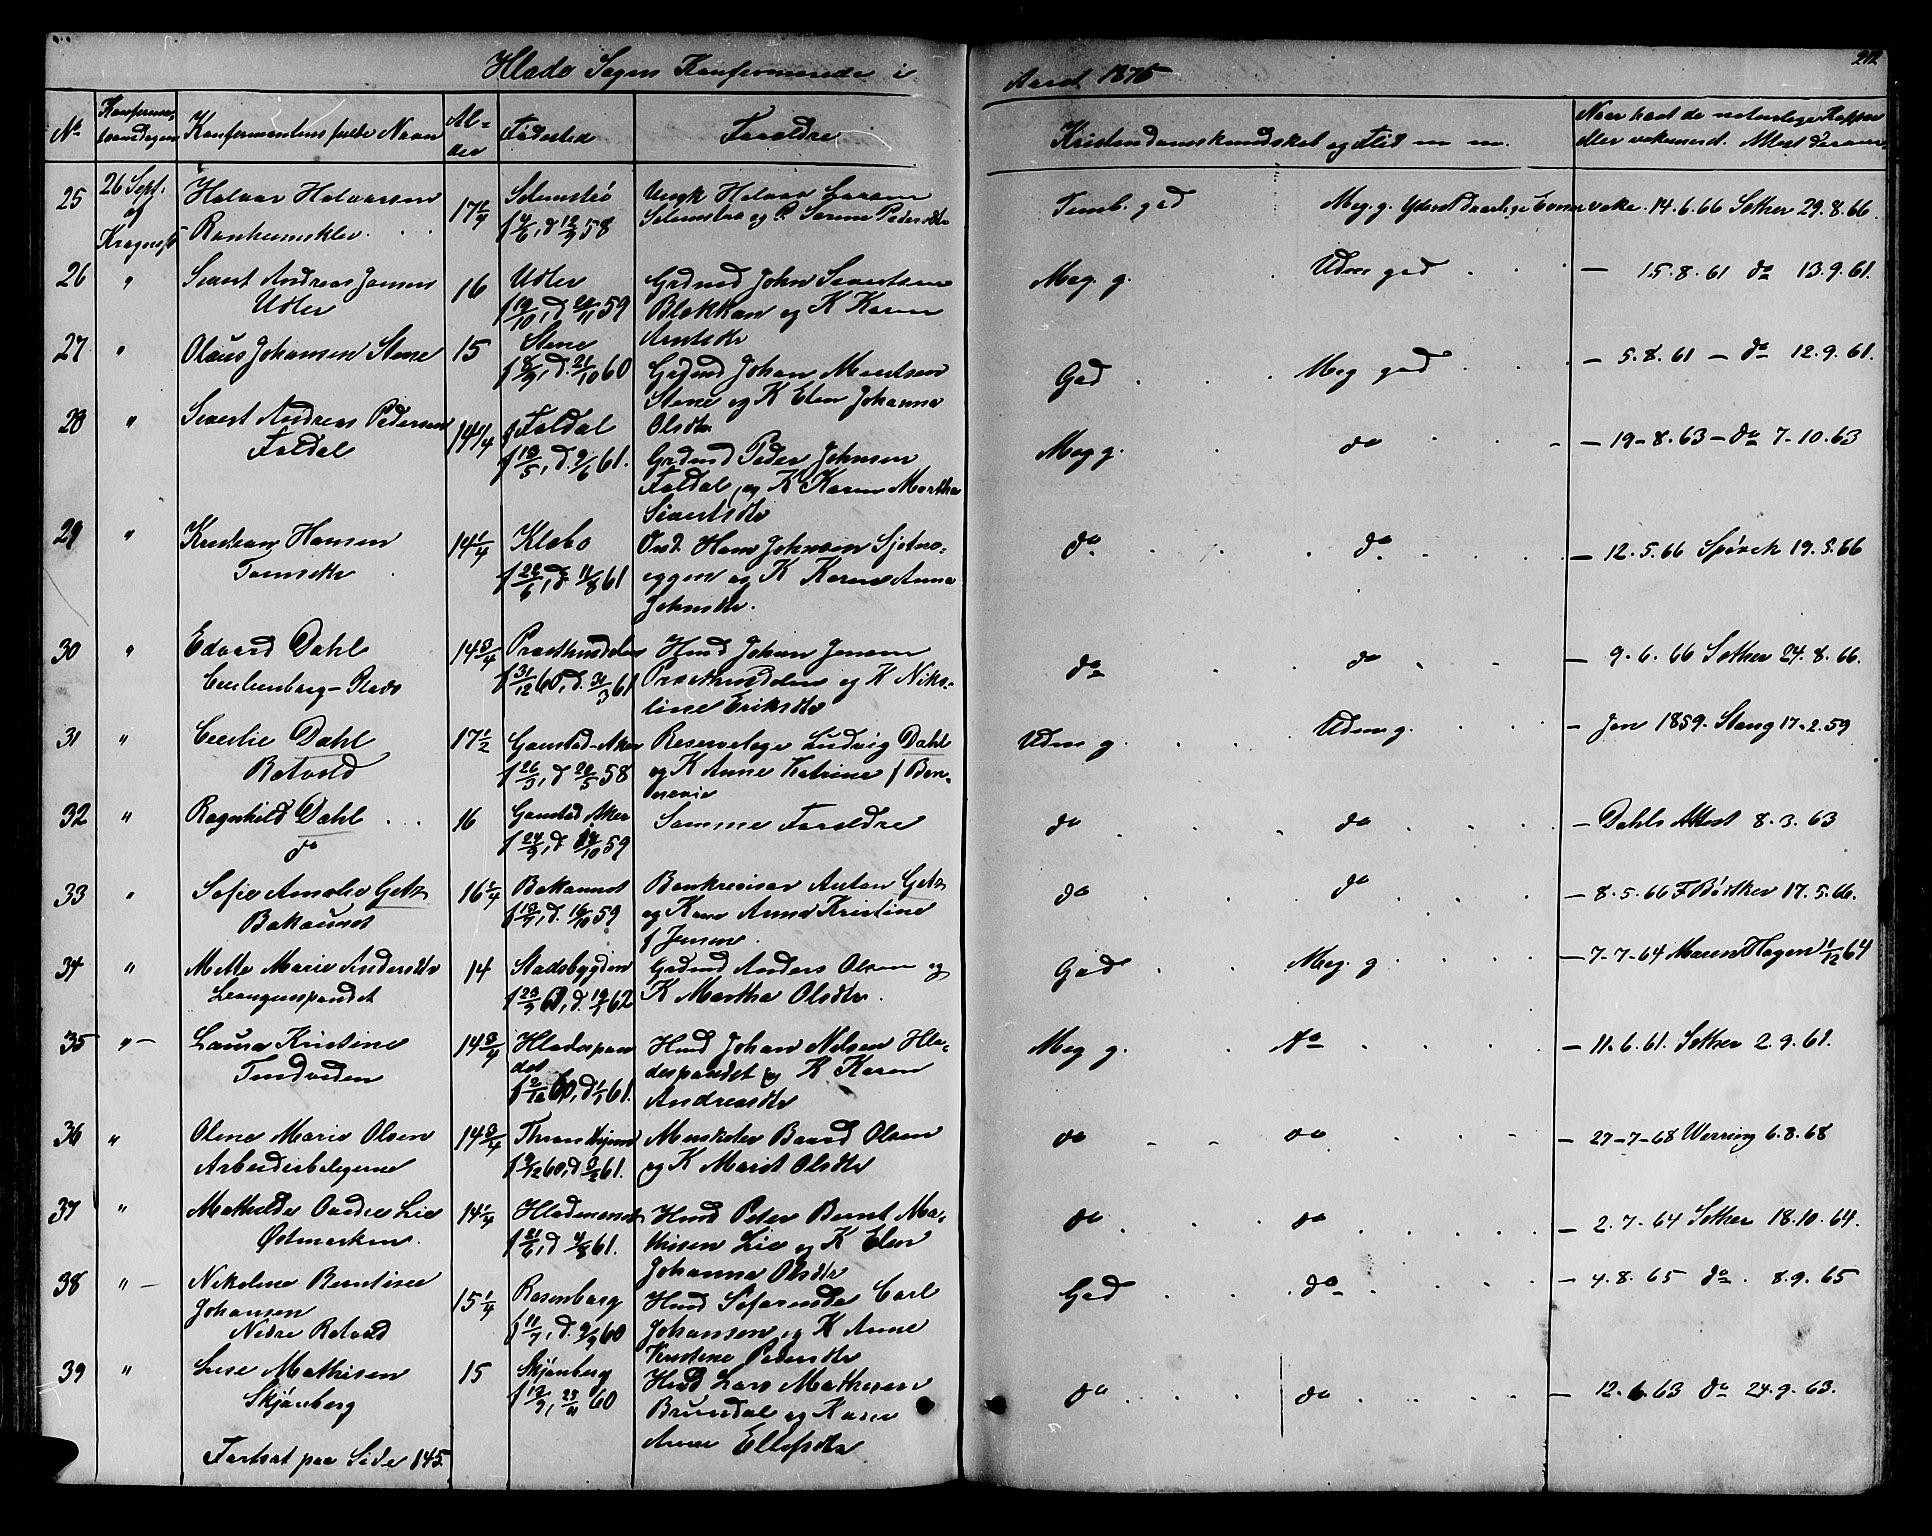 Hlade Sogns Konfirmerede i Aaret 1875
212
No
Konfirma-
tionsdagen
Konfirmantens fulde Navn
Al-
der
Fødested
Forældre
Kristendomskundskab og Flid m m.
Naar havt de naturlige Kopper
eller vakcinered. Attest derover
25
26 Sept.
af
Halvar Halvarsen
Ranheimsklev
17 1/4
f 4/6, d 12/9 58
Ungk Halvar Larsen
og P. Sarine Pedersdtr
Temb. god
Meg. g. Yderst daarlige Evner
vakc. 14.6.66 Sother 29.8.66.
26
"
Sivert Andreas Jonsen
Udler
16
Udler
f 19/10, d 20/11 59
Grdmd John Sivertsen
Blekkan og K Karen
Arntsdtr
Meg. g.
Udm god
— 15.8.61 do 13.9.61.
27
"
Olaus Johansen Stene
15
Stene
f 8/9, d. 21/10 60
Grdmd Johan Moertsen
Stene og K Elen Johanna
Olsdtr
God
Meg god
— 5.8.61 — do 12.9.61.
28
"
Sivert Andreas Pedersen
Foldal
14 1/4
Foldal
f 13/5, d. 9/6 61.
Grdmd Peder Johnsen
Foldal og K Karen Martha
Sivertsdtr
Meg g.
do
— 19-8.63 — do 7-10.63
29
"
Kristian Hansen
14 1/4
Klæbo
f 22/6, d. 11/8 61
Hans Johnsen Sjetne-
eggen og K Karen Anna
Johnsdtr.
do
do
— 12.5.66 19.5.66
30
"
Edvard Dahl
14 3/4
f 31/12 60, d. 31/3 61
Husmd Johan Jensen
og K Niko-
line Eriksdtr
do
do
— 9.6.66 Sother 24.8.66.
31
"
Cecilie Dahl
Rotvold
17 1/2
Gaustad-Aker
f 26/3, d 20/5 58
Reservelæge Ludvig Dahl
og K Anne Katrine f Bon-
nevie
Udm g.
Udm g.
— Jan 1859. Stang 17.2.59
32
"
Ragnhild Dahl
do
16
Gaustad Aker
f 24/9, d 14/10 59
Samme Forældre
do
do
— Dahls Attest 8.3.63
33
"
Sofie Amalie Getz
Bakaunet
16 1/4
Bakaunet
f 13/7, d. 16/10 59
Bankrevisor Anton Getz
og Kone Anna Kristine
f Jensen.
do
do
— 8.5.66 F Bødtker 17.5.66.
34
"
Mette Marie Andersdtr
Leangenspandet
14
Stadsbygden
Grdmd Anders Olsen og
K Martha Olsdtr.
God
Meg. g
— 7-7-64 Maren Hagen 1/12 64
35
" —
Laura Kristine
Tindveden
14 3/4
Hladespan
det
f 2/10 60, d 1/1 61.
Husmd Johan Nilsen Hla-
despandet og K Karen
Andreasdtr
Meg g.
do
— 11.6.61. Sother 2.9.61.
36
"
Olena Marie Olsen
Arbeiderboligerne
14 3/4
Throndhjem
f 9/12 60, d 3/2 61.
Musketer Baard Olsen
og K Marit Olsdtr
do
do
— 27-7-68 Werring 6.8.68
37
"
Mathilde Oordie Lie
Østmarken.
14 1/4
Hladmoen
f 21/6, d 4/8 61.
Husmd Peter Bernt Ma-
thisen Lie og K Elen
Johanna Olsdtr
do
do
— 2.7.64 Sother 18.10.64.
38
" —
Nikoline Berntine
Johansen
Nedre Rotvold
15 1/4
Rosenborg
f 11/7, d. 9/9 60
Husmd Søfarende Carl
Johansen og K Anne
Kristine Pedersdtr
God
do
— 4.8.65 do. 8.9.65
39
"
Lise Mathisen
Skjønberg
15
Skjønberg
f 12/9, 25/11 60
Husmd Lars Mathisen
Brundal og Karen
Anne Ellefsdtr
do
do
— 12.6.63 do 24.9.63.
Fortsat paa Side 145.